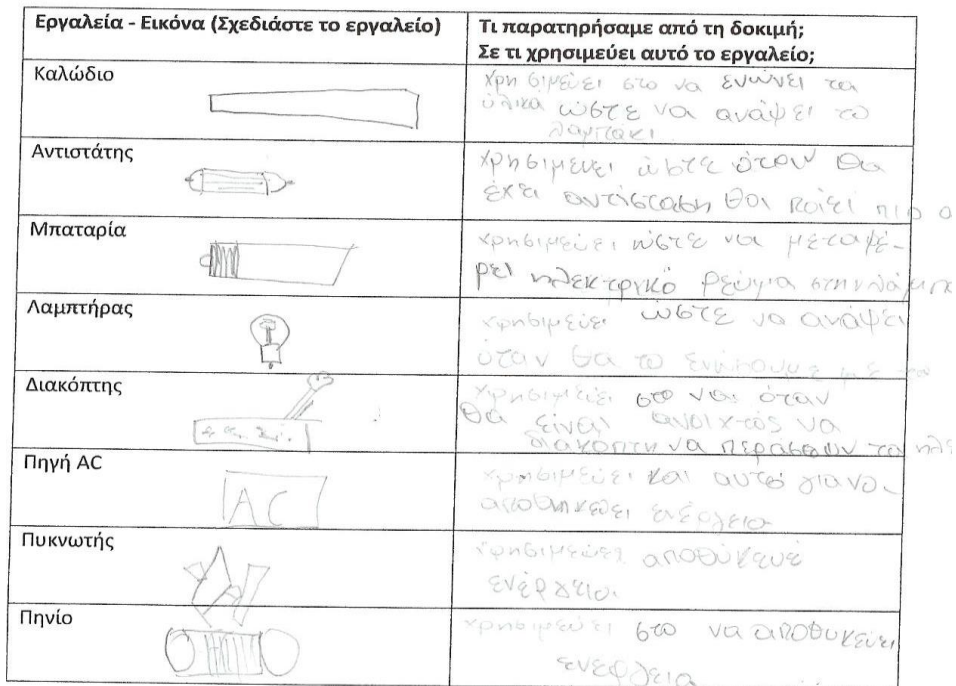 Εργαλεία - Εικόνα (Σχεδιάστε το εργαλείο)
Τι παρατηρήσαμε από τη δοκιμή;
Σε τι χρησιμεύει αυτό το εργαλείο;
Καλώδιο
χρησιμεύει στο να ενώνει τα
ύλικά ώστε να ανάψει το
λαμπάκι
Αντιστάτης
χρησιμευει ώστε όταν θα
έχει αντίσταση θα καίει πιο
Μπαταρία
χρησιμεύει ώστε να μεταφέ-
ρει ηλεκτρικό ρεύμα στην λάμπα
Λαμπτήρας
χρησιμεύει ώστε να ανάψει
όταν θα το ενώσουμε με το
Διακόπτης
χρησιμεύει στο να όταν
θα είναι ανοιχτός να
διακόπτη να περάσουν τα ηλε
Πηγή AC
AC
χρησιμεύει και αυτό για να
αποθηκεύει ενέργεια
Πυκνωτής
χρησιμεύει αποθύκευε
ενέργεια
Πηνίο
χρησιμεύει στο να αποθυκεύει
ενέργεια